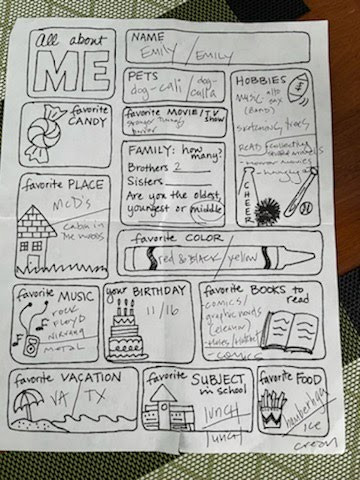 All about
ME
NAME
EMILY / EMILY
PETS
dog-cali / dog-
calla
HOBBIES
MUSIC: alto
sax
(BAND)
sketching /
READ /
favorite
CANDY
favorite MOVIE/TV
show
Stranger Things
FAMILY: how
many?
Brothers 2
Sisters
Are you the oldest,
youngest or middle
CHEER
favorite PLACE
McD's
cabin in
the woods
favorite COLOR
red & BLACK / yellow
favorite MUSIC
rock
Floyd
Nirvana
METAL
your BIRTHDAY
11/16
favorite BOOKS to
read
comics/
graphic novels
COMICS
favorite VACATION
VA / TX
favorite SUBJECT
in school
lunch
lunch
favorite FOOD
ice
cream